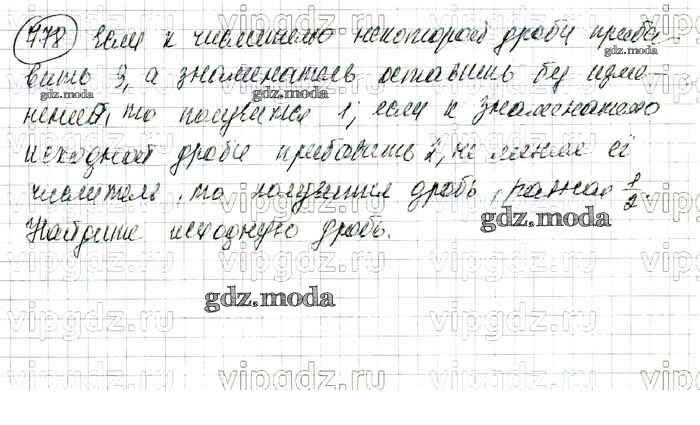 778 Если к числителю некоторой дроби приба-
вить 3, а знаменатель оставить без изме-
нений, то получится 1; если к знаменателю
исходной дроби прибавить 2, не меняя её
числитель, то получится дробь, равная 1/2.
Найдите исходную дробь.
gdz.moda
gdz.moda
gdz.moda
gdz.moda
gdz.moda
gdz.moda
vipgdz.ru
vipgdz.ru
vipgdz.ru
vipgdz.ru
vipgdz.ru